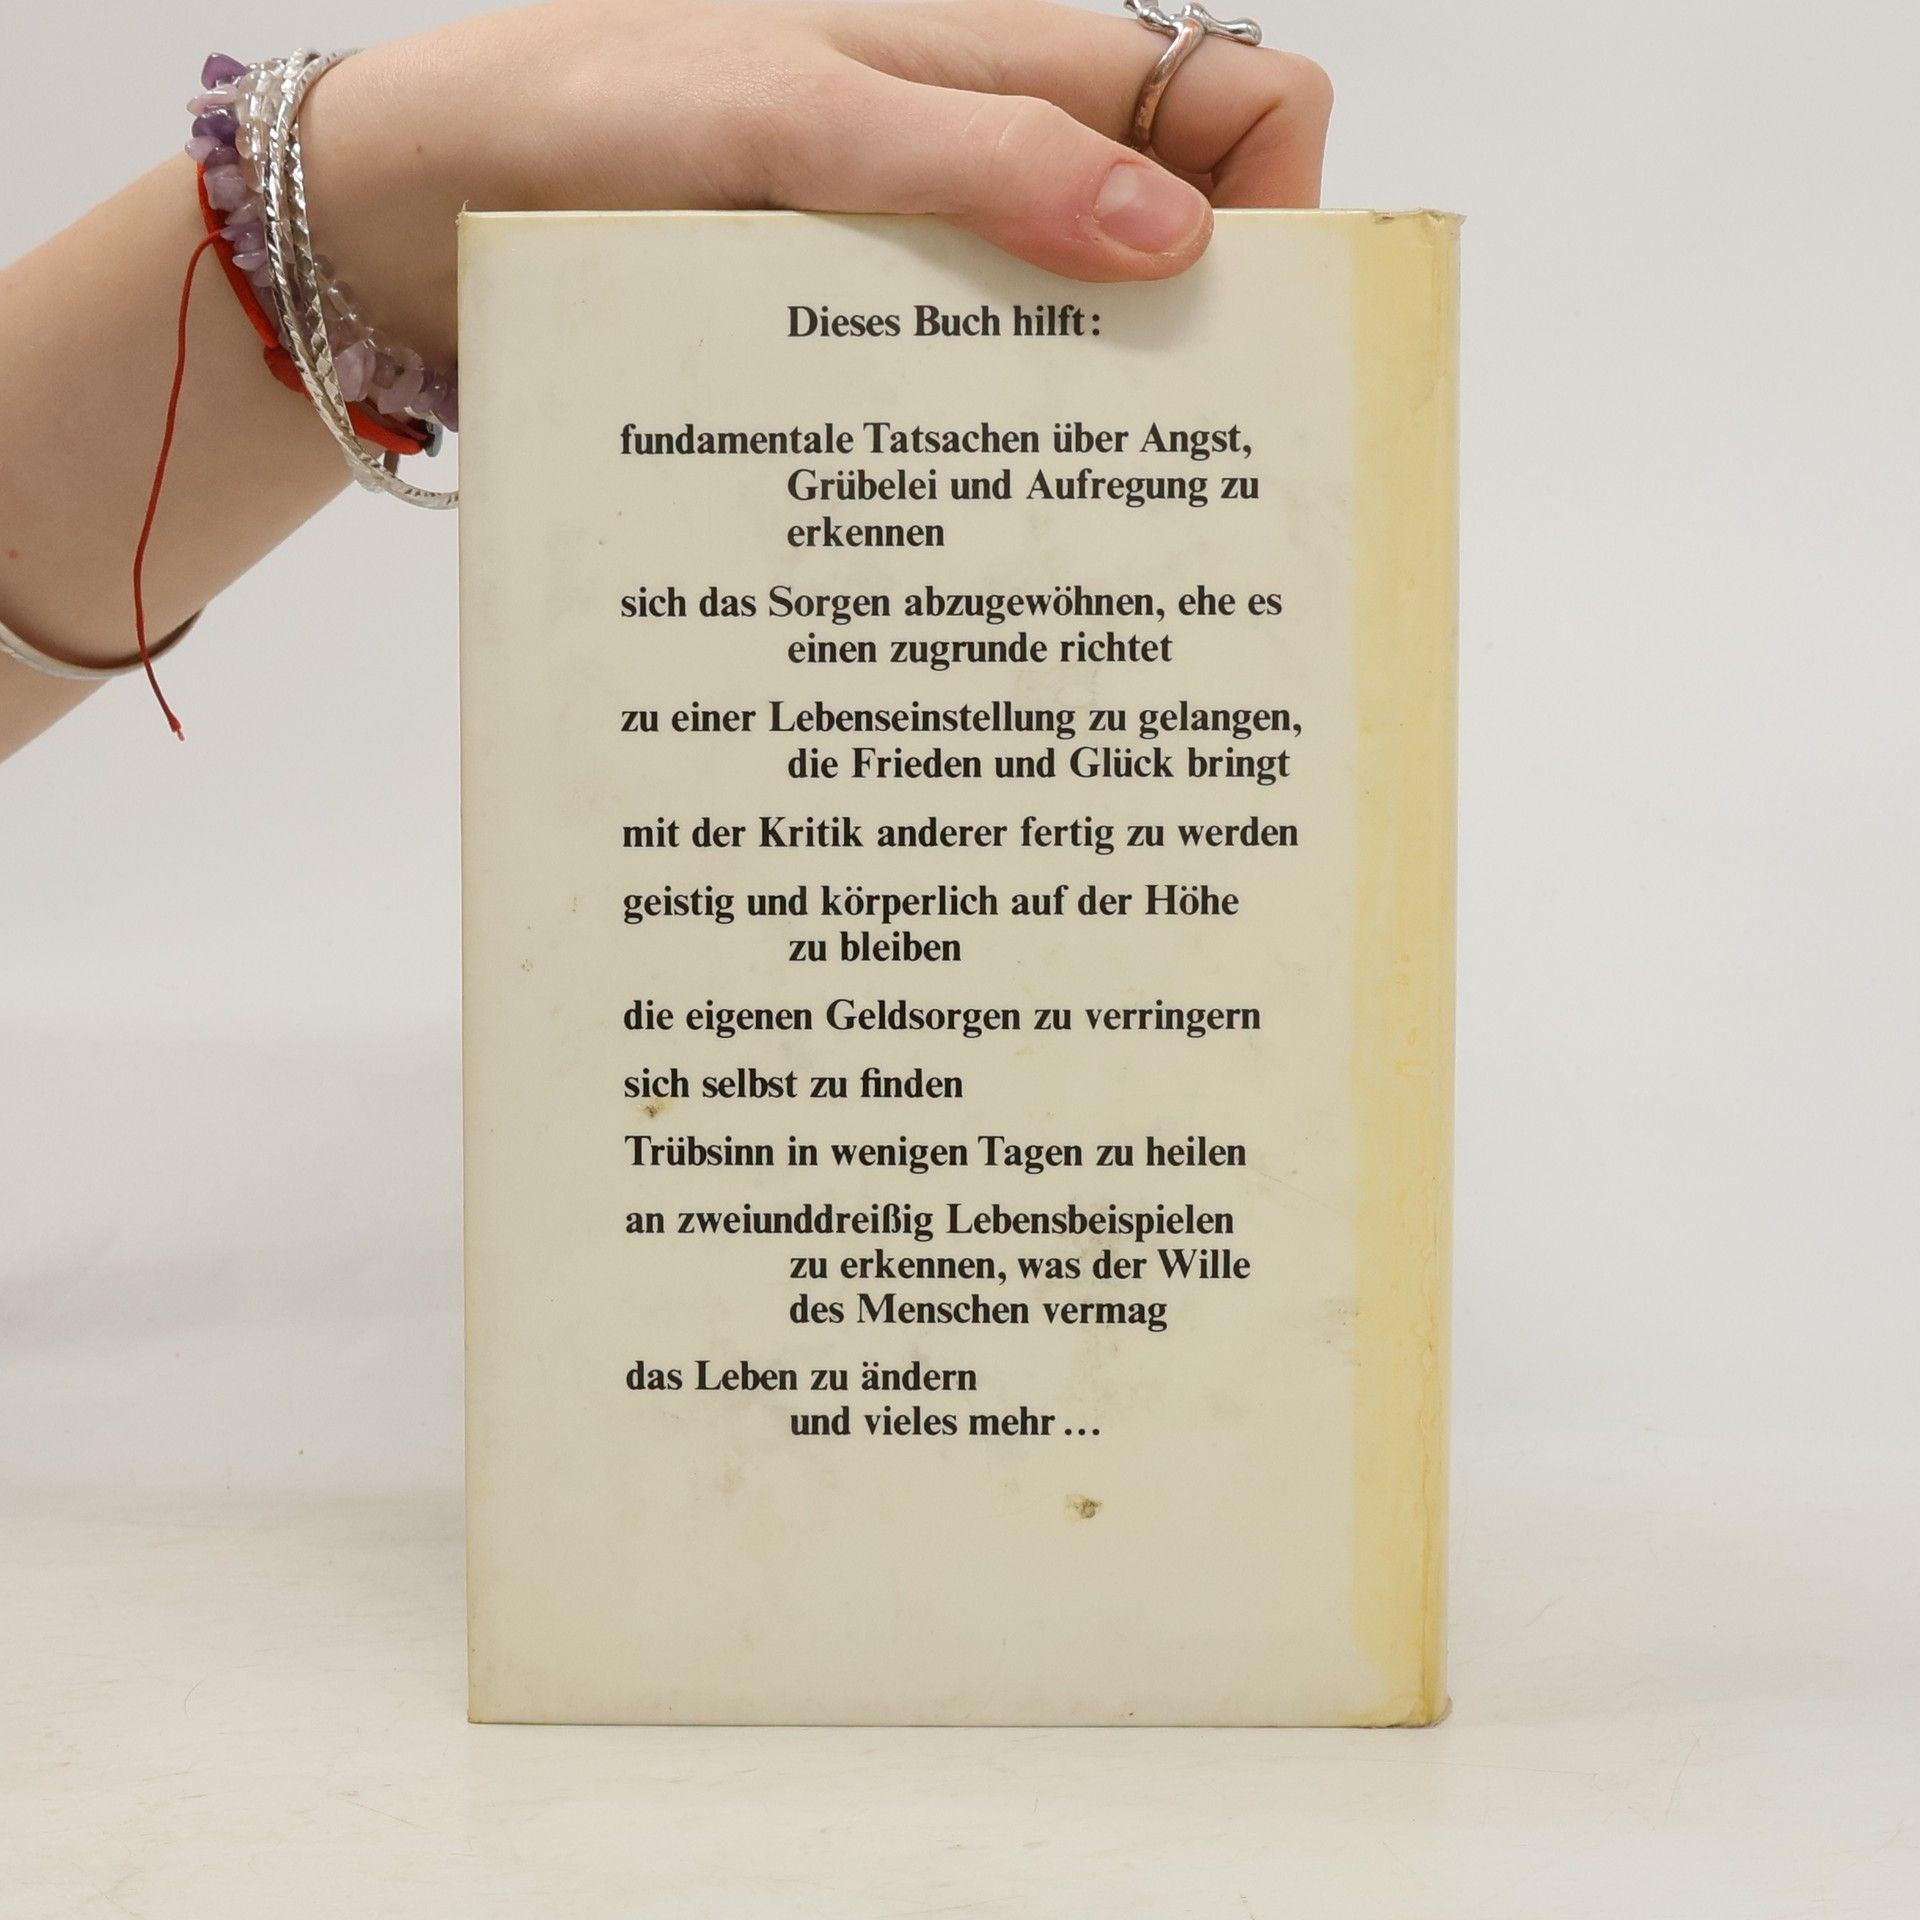 Dieses Buch hilft:
fundamentale Tatsachen über Angst,
Grübelei und Aufregung zu
erkennen
sich das Sorgen abzugewöhnen, ehe es
einen zugrunde richtet
zu einer Lebenseinstellung zu gelangen,
die Frieden und Glück bringt
mit der Kritik anderer fertig zu werden
geistig und körperlich auf der Höhe
zu bleiben
die eigenen Geldsorgen zu verringern
sich selbst zu finden
Trübsinn in wenigen Tagen zu heilen
an zweiunddreißig Lebensbeispielen
zu erkennen, was der Wille
des Menschen vermag
das Leben zu ändern
und vieles mehr...